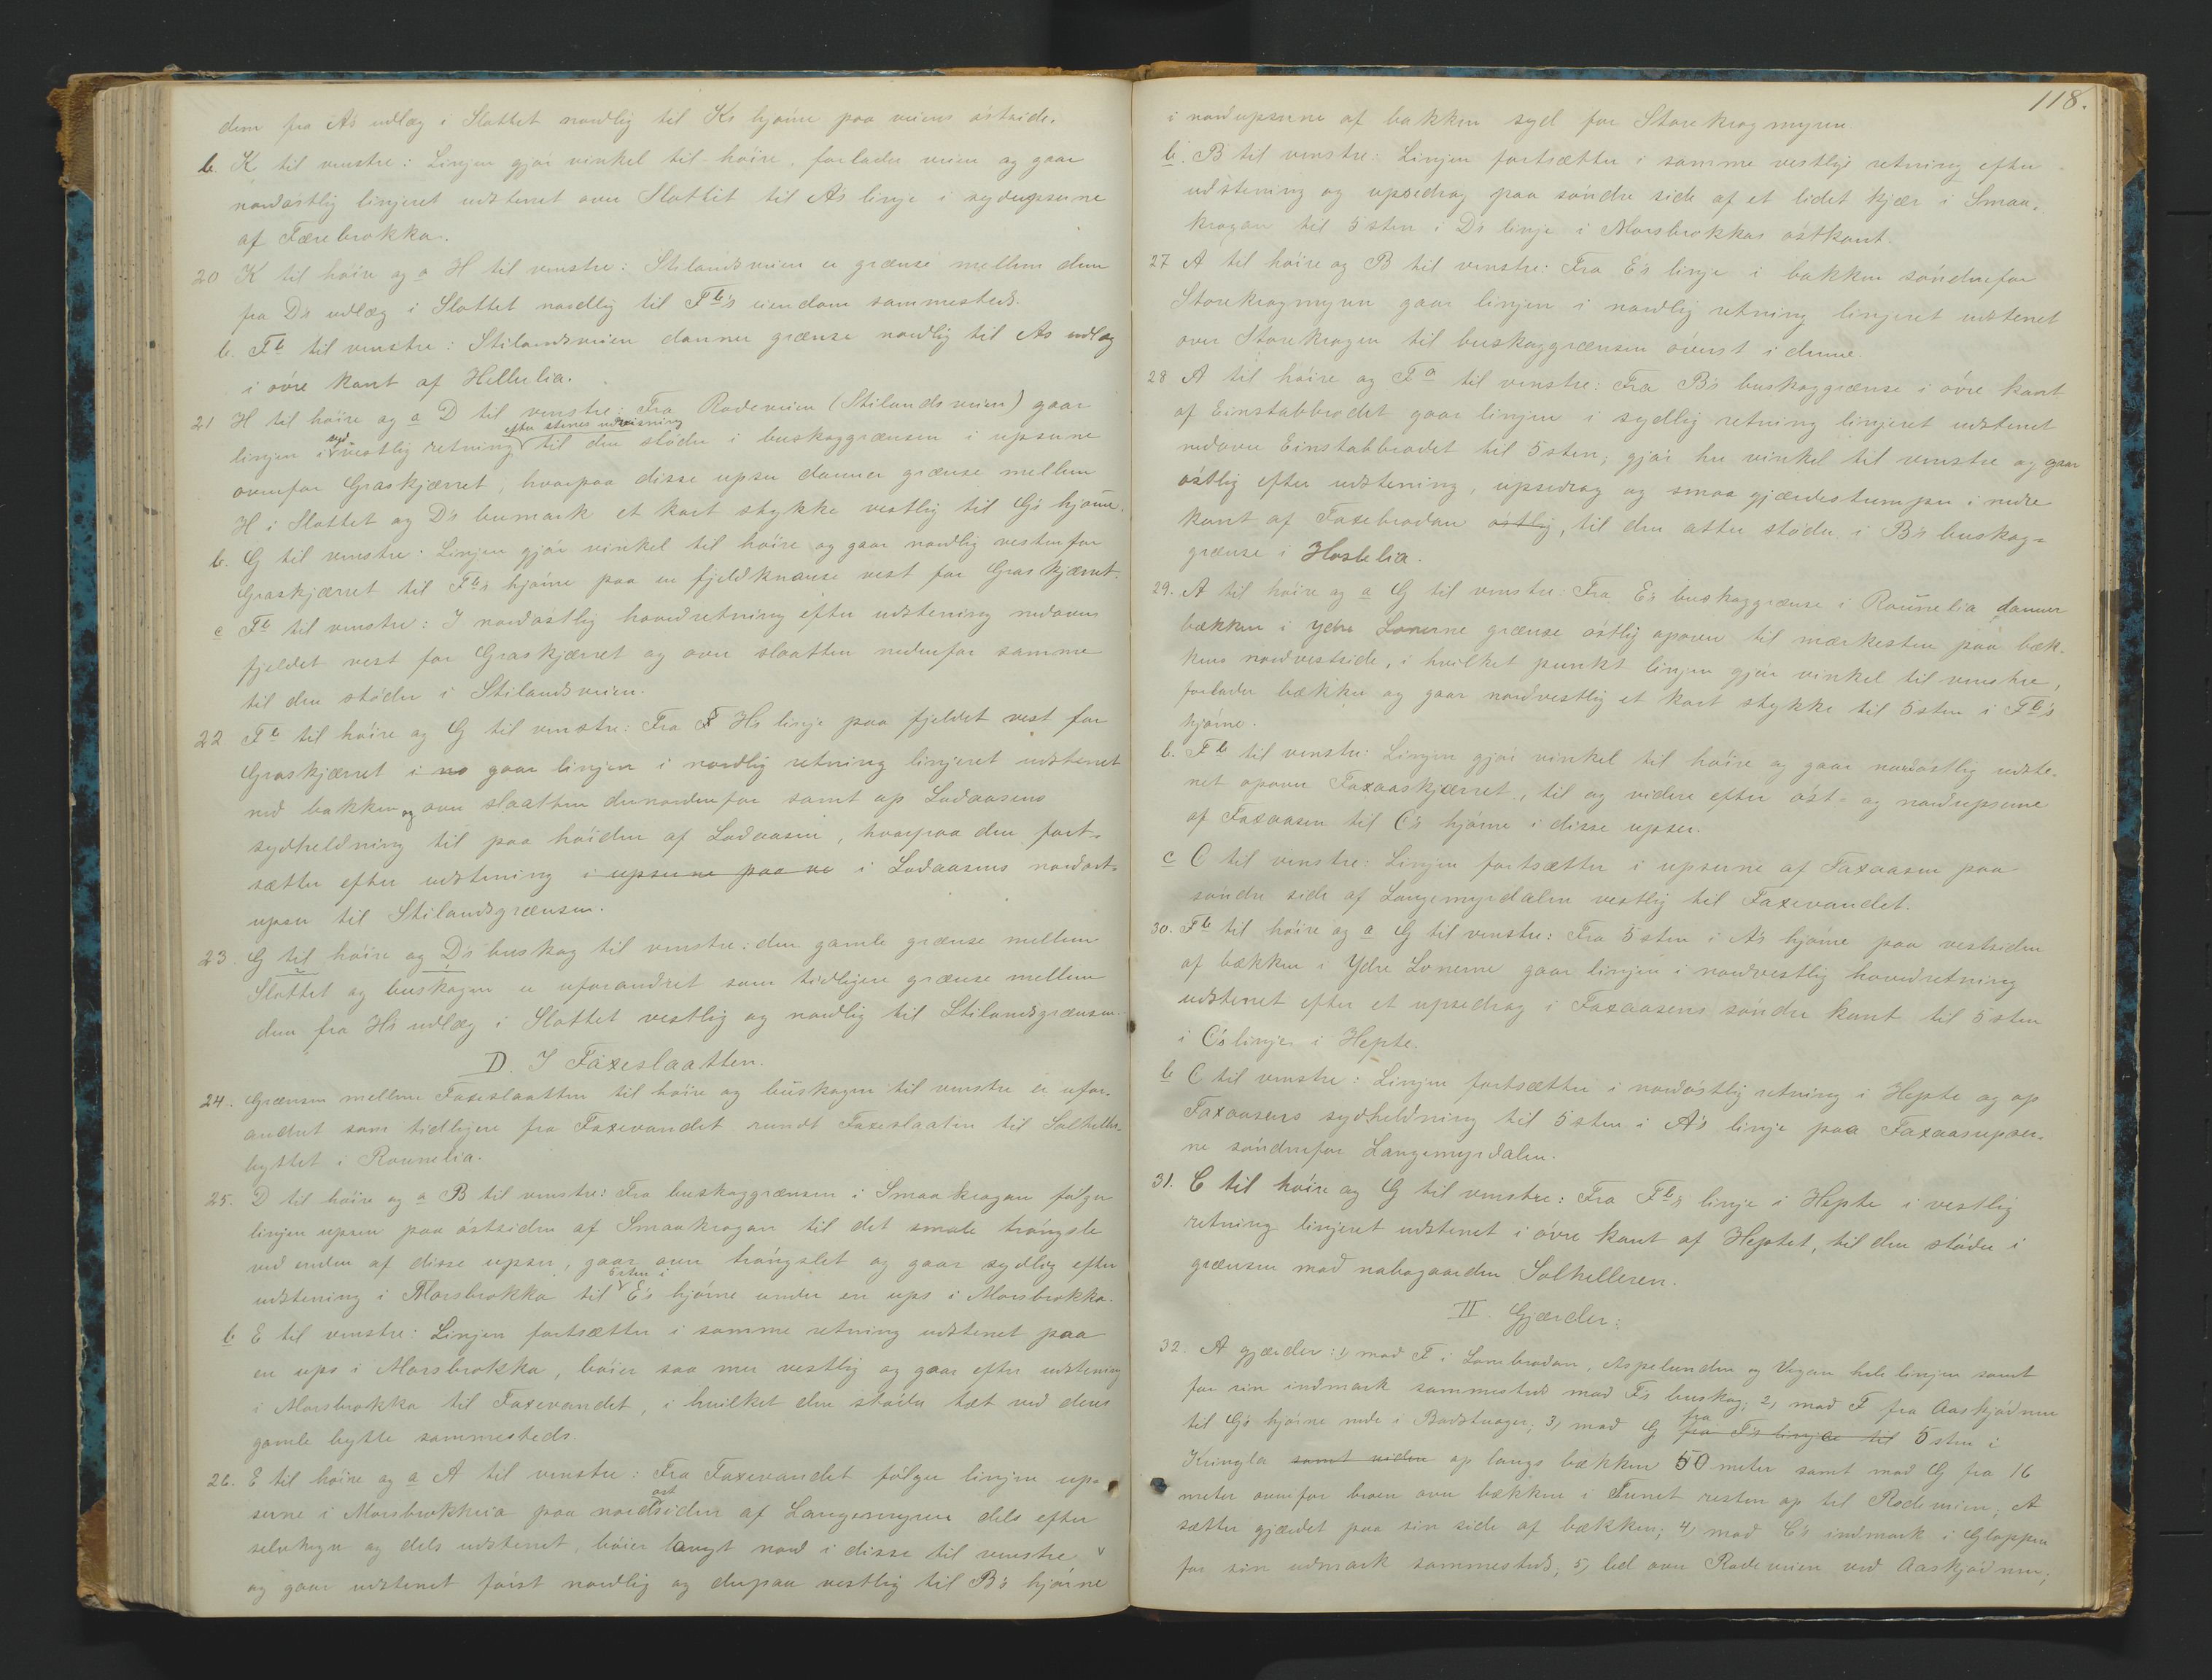 dem fra A's udlæg i Slottet nordlig til K's hjørne paa veiens østside.
b. K til venstre: Linjen gjør vinkel til høire, forlader veien og gaar
nordøstlig linjeret udstenet over Slottet til A's linje i sydupserne
af Færebrokka.
20 K til høire og a H til venstre: Stilandsveien er grænse mellem dem
fra D's udlæg i Slottet nordlig til Fb's eiendom sammesteds.
b. Fb til venstre: Stilandsveien danner grænse nordlig til A's udlæg
i øvre kant af Hellelia.
21 H til høire og a D til venstre: Fra Rodeveien (Stilandsveien) gaar
linjen i sydvestlig retning efter stenes udvisning til den støder i buskoggrænsen i upserne
ovenfor Graskjærret, hvorpaa disse upser danner grænse mellem
H i Slottet og D's bumark et kort stykke vestlig til G's hjørne.
b. G til venstre: Linjen gjør vinkel til høire og gaar nordlig vestenfor
Graskjærret til Fb's hjørne paa en fjeldknause vest for Graskjærret.
c Fb til venstre: I nordøstlig hovedretning efter udstening nedover
fjeldet vest for Graskjærret og over slaatten nedenfor samme
til den støder i Stilandsveien.
22. Fb til høire og G til venstre: Fra F H's linje paa fjeldet vest for
Graskjærret i no gaar linjen i nordlig retning linjeret udstenet
ned bakken og over slaatten dernordenfor samt op Ladaasens
sydheldning til paa høiden af Ladaasen, hvorpaa den fort-
sætter efter udstening i upserne paa ve i Ladaasens nordost-
upser til Stilandsgrænsen.
23. G til høire og D's buskog til venstre: den gamle grænse mellem
Slottet og buskogen er uforandret som tidligere grænse mellem
dem fra H's udlæg i Slottet vestlig og nordlig til Stilandsgrænsen.
D. I Faxeslaatten.
24. Grænsen mellem Faxeslaatten til høire og buskogen til venstre er ufor-
andret som tidligere fra Faxevandet rundt Faxeslaatten til Salheller-
byttet i Rounelia.
25. D til høire og a B til venstre: Fra buskoggrænsen i Smaakrogan følger
linjen upsen paa østsiden af Smaakrogan til det smale trøngsle
ved enden af disse upser, gaar over trøngslet og gaar sydlig efter
udstening i Morsbrokka til 5sten i E's hjørne under en ups i Morsbrokka.
b E til venstre: Linjen fortsætter i samme retning udstenet paa
en ups i Morsbrokka, bøier saa mer vestlig og gaar efter udstening
i Morsbrokka til Faxevandet, i hvilket den støder tæt ved dens
gamle bytte sammesteds.
26. E til høire og a A til venstre: Fra Faxevandet følger linjen up-
serne i Morsbrokkeia paa nordostsiden af Langemyren dels efter
selvhegn og dels udstenet, bøier langt nord i disse til venstre
og gaar udstenet først nordlig og derpaa vestlig til B's hjørne
118.
i nordupserne af bakken syd for Storekrogmyren.
b. B til venstre: Linjen fortsætter i samme vestlige retning efter
udstening og upsedrag paa søndre side af et lidet kjær i Smaa-
krogan til 5sten i D's linje i Morsbrokkas østkant.
27 A til høire og B til venstre: Fra E's linje i bakken søndenfor
Storekrogmyren gaar linjen i nordlig retning linjeret udstenet
over Storekrogen til buskoggrænsen øverst i denne.
28 A til høire og Fa til venstre: Fra B's buskoggrænse i øvre kant
af Einstabbrodet gaar linjen i sydlig retning linjeret udstenet
nedover Einstabbrodet til 5sten, gjør her vinkel til venstre og gaar
østlig efter udstening, upsedrag og smaa gjærdestumper i nedre
kant af Faxebrodan østlig, til den atter støder i B's buskog-
grænse i Hostelia.
29. A til høire og a G til venstre: Fra E's buskoggrænse i Rounelia danner
bækken i ydre Lonerne grænse østlig opover til mærkesten paa bæk-
kens nordvestside, i hvilket punkt linjen gjør vinkel til venstre,
forlader bækken og gaar nordvestlig et kort stykke til 5sten i Fb's
hjørne.
b. Fb til venstre: Linjen gjør vinkel til høire og gaar nordøstlig udste-
net opover Faxaaskjærret, til og videre efter øst- og nordupserne
af Faxaasen til C's hjørne i disse upser.
c C til venstre: Linjen fortsætter i upserne af Faxaasen paa
søndre side af Langemyrdalen vestlig til Faxevandet.
30. Fb til høire og a G til venstre: Fra 5sten i A's hjørne paa vestsiden
af bækken i Ydre Lonerne gaar linjen i nordvestlig hovedretning
udstenet efter et upsedrag i Faxaasens søndre kant til 5sten
i C's linje i Hepte.
b C til venstre: Linjen fortsætter i nordøstlig retning i Hepte og op
Faxaasens sydheldning til 5sten i A's linje paa Faxaasupser-
ne søndenfor Langemyrdalen.
31. C til høire og G til venstre: Fra Fb's linje i Hepte i vestlig
retning linjeret udstenet i øvre kant af Heptet, til den støder i
grænsen mod nabogaarden Salhelleren.
II. Gjærder:
32. A gjærder: 1, mod F i Lonebrodan, Aspelunden og Vegen hele linjen samt
for sin indmark sammesteds mod F's buskog; 2, mod F fra Aaskjødnen
til G's hjørne nede i Badstuoger; 3, mod G fra fra F's linje til 5sten i
Kringla samt videre op langs bækken 50 meter samt mod G fra 16
meter ovenfor broen over bækken i Tunet resten op til Rodeveien; A
sætter gjærdet paa sin side af bækken; 4, mod C's indmark i Gloppen
for sin udmark sammesteds; 5, led over Rodeveien ved Aaskjødnen;